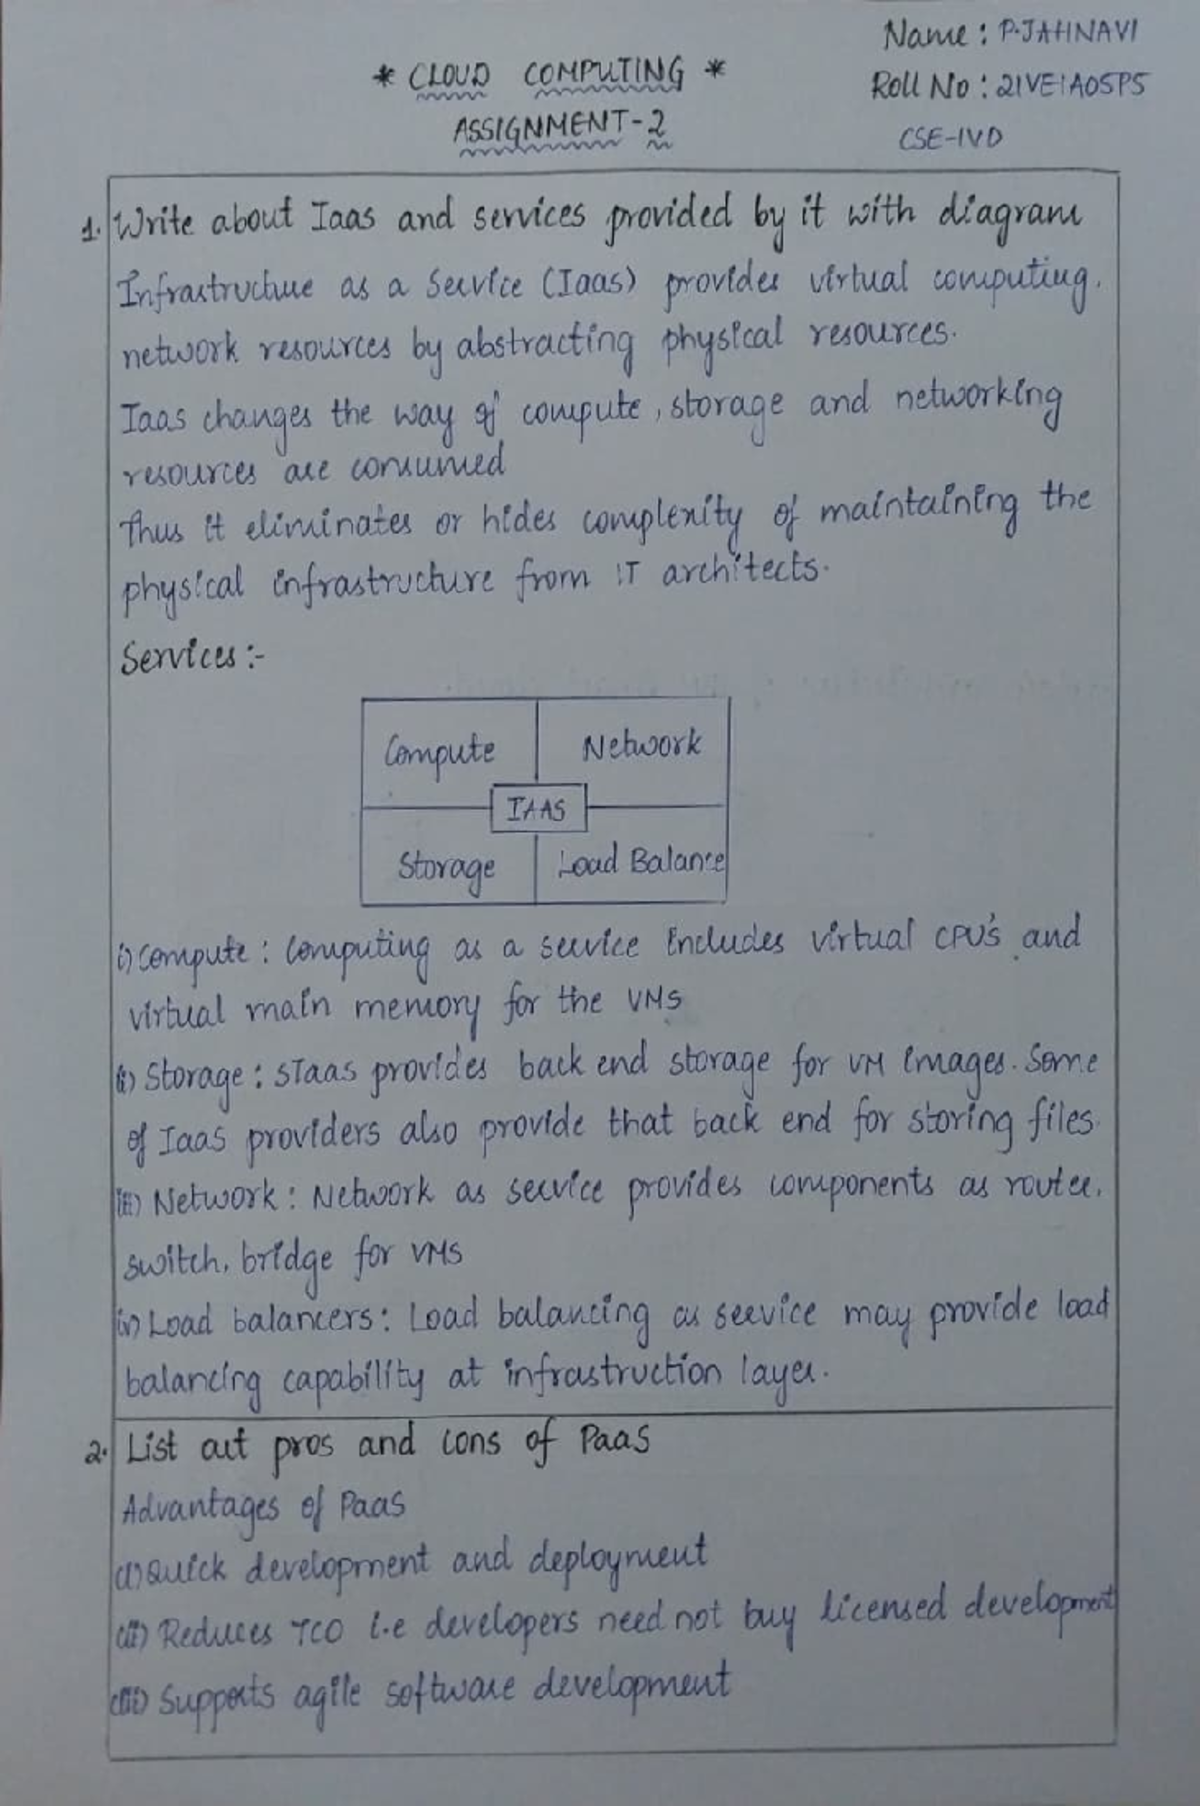 Name : P.JAHNAVI
* CLOUD COMPUTING *
Roll No : 21VE1A05P5
ASSIGNMENT-2
CSE-IVD
1. Write about Iaas and services provided by it with diagram
Infrastructure as a Service (Iaas) provides virtual computing,
network resources by abstracting physical resources.
Iaas changes the way of compute, storage and networking
resources are consumed
Thus it eliminates or hides complexity of maintaining the
physical infrastructure from IT architects.
Services :-
Compute Network
IAAS
Storage Load Balance
i) Compute : Computing as a service includes virtual CPU's and
virtual main memory for the VMs
ii) Storage : STaas provides back end storage for VM images. Some
of Iaas providers also provide that back end for storing files.
iii) Network : Network as service provides components as router,
switch, bridge for VMs
iv) Load balancers : Load balancing as service may provide load
balancing capability at infrastruction layer.
2. List out pros and cons of Paas
Advantages of Paas
(i) Quick development and deployment
(ii) Reduces TCO i.e developers need not buy licensed development
(iii) Supports agile software development